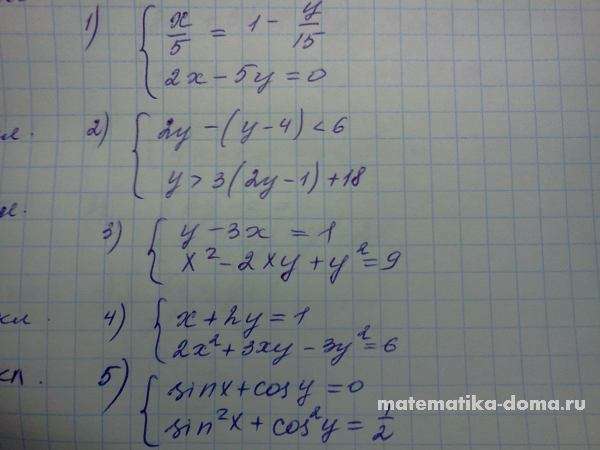 1) { x/5 = 1 - y/15
2x - 5y = 0
л. 2) { 2y - (y - 4) < 6
y > 3(2y - 1) + 18
3) { y - 3x = 1
x² - 2xy + y² = 9
кл. 4) { x + 2y = 1
2x² + 3xy - 3y² = 6
5) { sin x + cos y = 0
sin²x + cos²y = 1/2
matematika-doma.ru